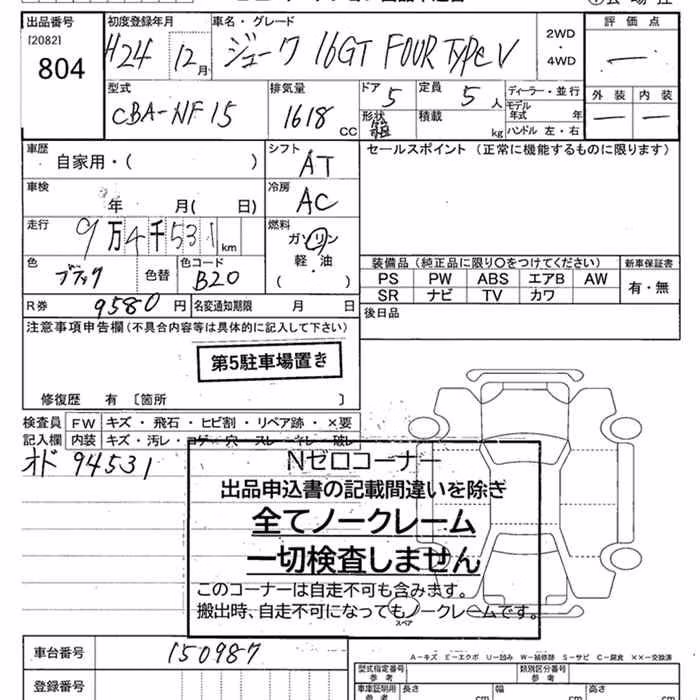 出品番号 初度登録年月 車名・グレード 2WD・4WD 評価点
[2082]
804 H24 12月 ジューク 16GT FOUR TYPE V
型式 排気量 ドア 定員 ディーラー・並行 外装 内装
CBA-NF15 1618 CC 5 5人 モデル年式 年
形状 箱 積載 kg ハンドル 左・右
車歴 自家用・( ) シフト AT セールスポイント (正常に機能するものに限ります)
車検 年 月( 日) 冷房 AC
走行 9万4千531km 燃料 ガソリン 軽・油 ( )
色 ブラック 色替 色コード B20
装備品 (純正品に限り○をつけてください) 新車保証書
PS PW ABS エアB AW 有・無
SR ナビ TV カワ
R券 9580円 名変通知期限 月 日 後日品
注意事項申告欄 (不具合内容等は具体的に記入して下さい)
第5駐車場置き
修復歴 有 [箇所 ]
検査員 FW キズ・飛石・ヒビ割・リペア跡・×要
記入欄 内装 キズ・汚レ・コゲ・穴・スレ・ネレ・破レ
オド 94531
Nゼロコーナー
出品申込書の記載間違いを除き
全てノークレーム
一切検査しません
このコーナーは自走不可も含みます。
搬出時、自走不可になってもノークレームです。
スペア
A-キズ E-エクボ U-凹み W-補修跡 S-サビ C-腐食 ××-交換済
車台番号 150987
型式指定番号 参考 類別区分番号 参考
登録番号 車庫証明用 参考 長さ cm 幅 cm 高さ cm